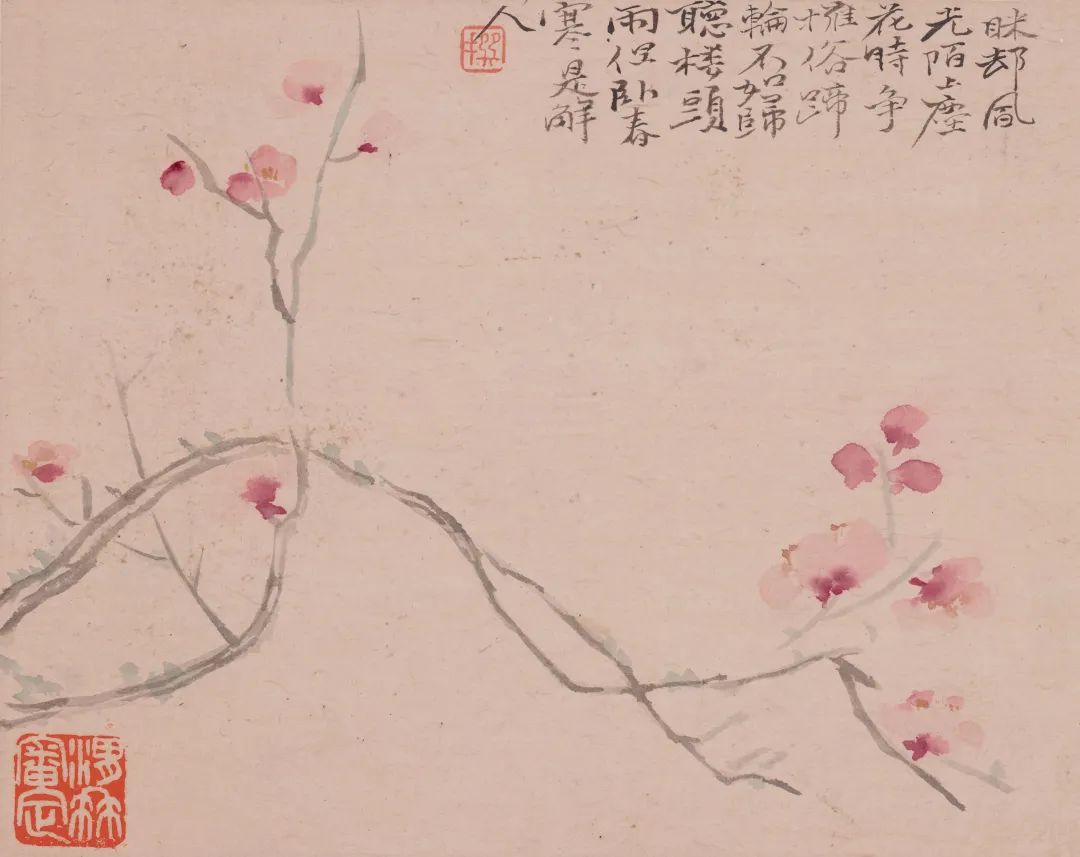 眯却風
光陌上塵
花時争
擁俗蹄
輪不如歸
聽楼頭
雨但卧春
寒是解
人